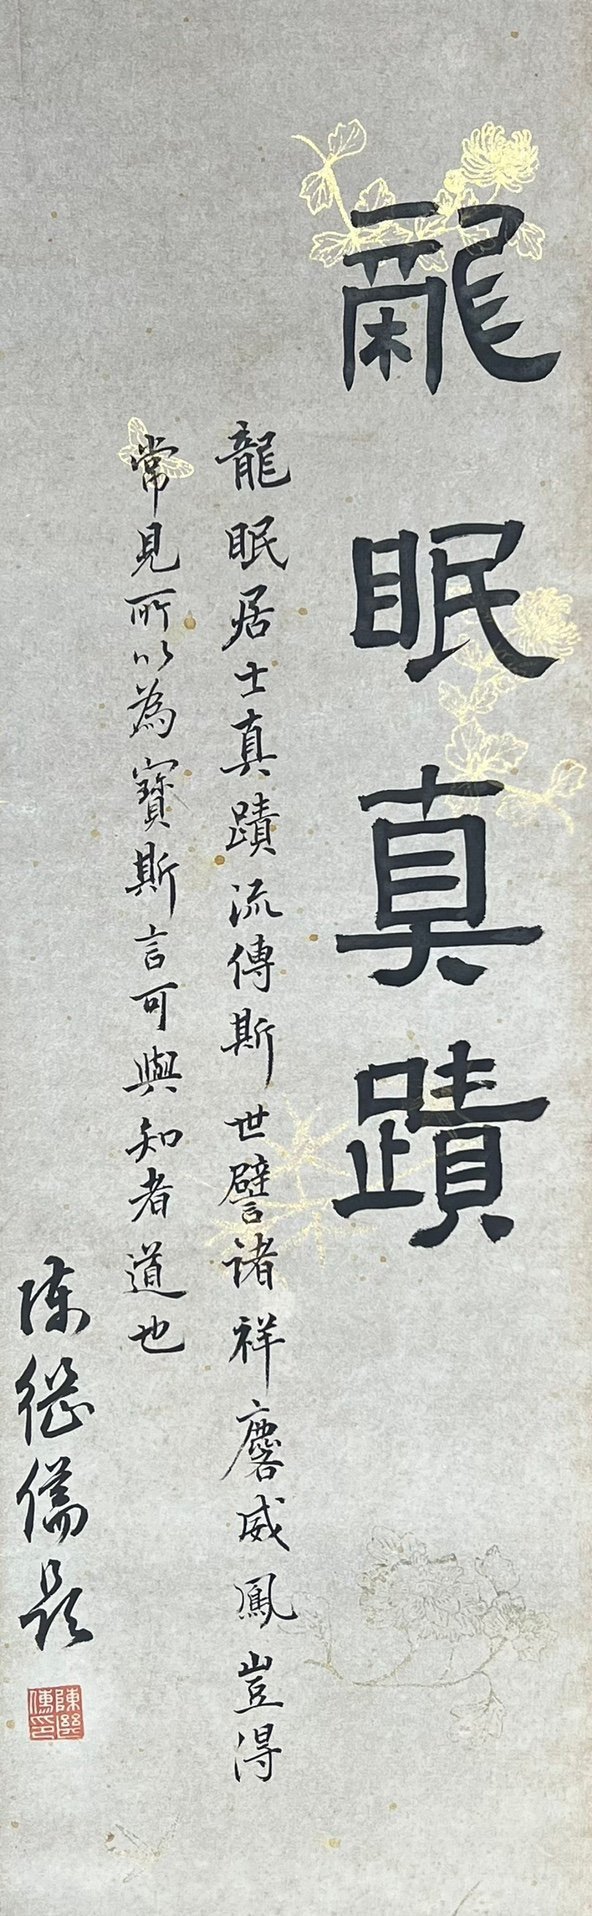 龍眠真蹟
龍眠居士真蹟流傳斯世譬諸祥麐威鳳豈得
常見所以為寶斯言可與知者道也
陳繼儒題